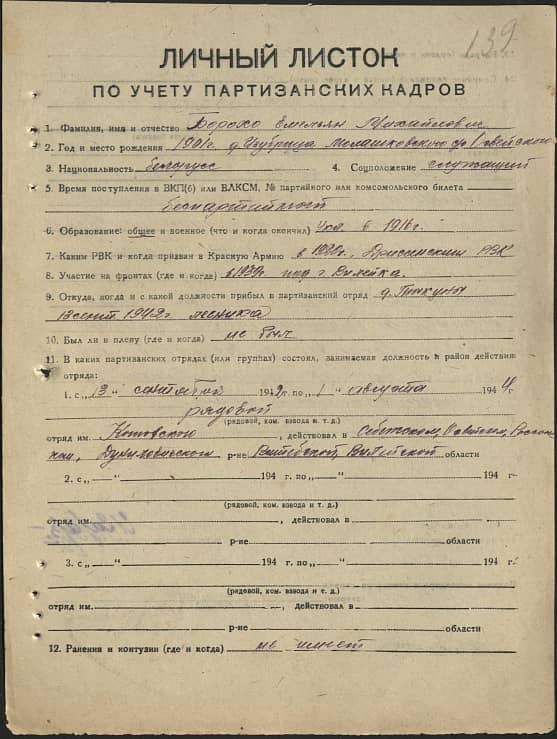 139
ЛИЧНЫЙ ЛИСТОК
ПО УЧЕТУ ПАРТИЗАНСКИХ КАДРОВ
1. Фамилия, имя и отчество Борохо Емельян Михайлович
2. Год и место рождения 1901г. д. Мелашковского с/с
3. Национальность белорусс 4. Соцположение служащий
5. Время поступления в ВКП(б) или ВЛКСМ, № партийного или комсомольского билета
беспартийный
6. Образование: общее и военное (что и когда окончил) 4кл. в 1916г.
7. Каким РВК и когда призван в Красную Армию в 1920г., Дриссенским РВК
8. Участие на фронтах (где и когда) под г. Вилейка.
9. Откуда, когда и с какой должности прибыл в партизанский отряд д.
1942г.
10. Был ли в плену (где и когда) не был
11. В каких партизанских отрядах (или группах) состоял, занимаемая должность и район действия
отряда:
1. с „13" сентября 1942г. по „1" августа 1944г.
рядовой
(рядовой, ком. взвода и т. д.)
отряд им. Котовского, действовал в Себежском, Освейском,
Дуниловичском р-не Витебской, Вилейской области
2. с „ " 194 г. по „ " 194 г.
(рядовой, ком. взвода и т. д.)
отряд им. , действовал в
р-не области
3. с „ " 194 г. по „ " 194 г.
(рядовой, ком. взвода и т. д.)
отряд им. , действовал в
р-не области
12. Ранения и контузии (где и когда) не имеет